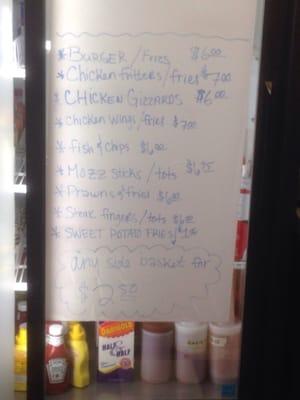 * BURGER / Fries $6.00
* Chicken fritters / fries $7.00
* CHICKEN GIZZARDS $6.00
* Chicken wings / fries $7.00
* fish & chips $6.00
* Mozz sticks / tots
* Prawns & fries $6.00
* Steak fingers / tots
* SWEET POTATO FRIES $1.00
any side basket for
$2.50
DARIGOLD
HALF & HALF